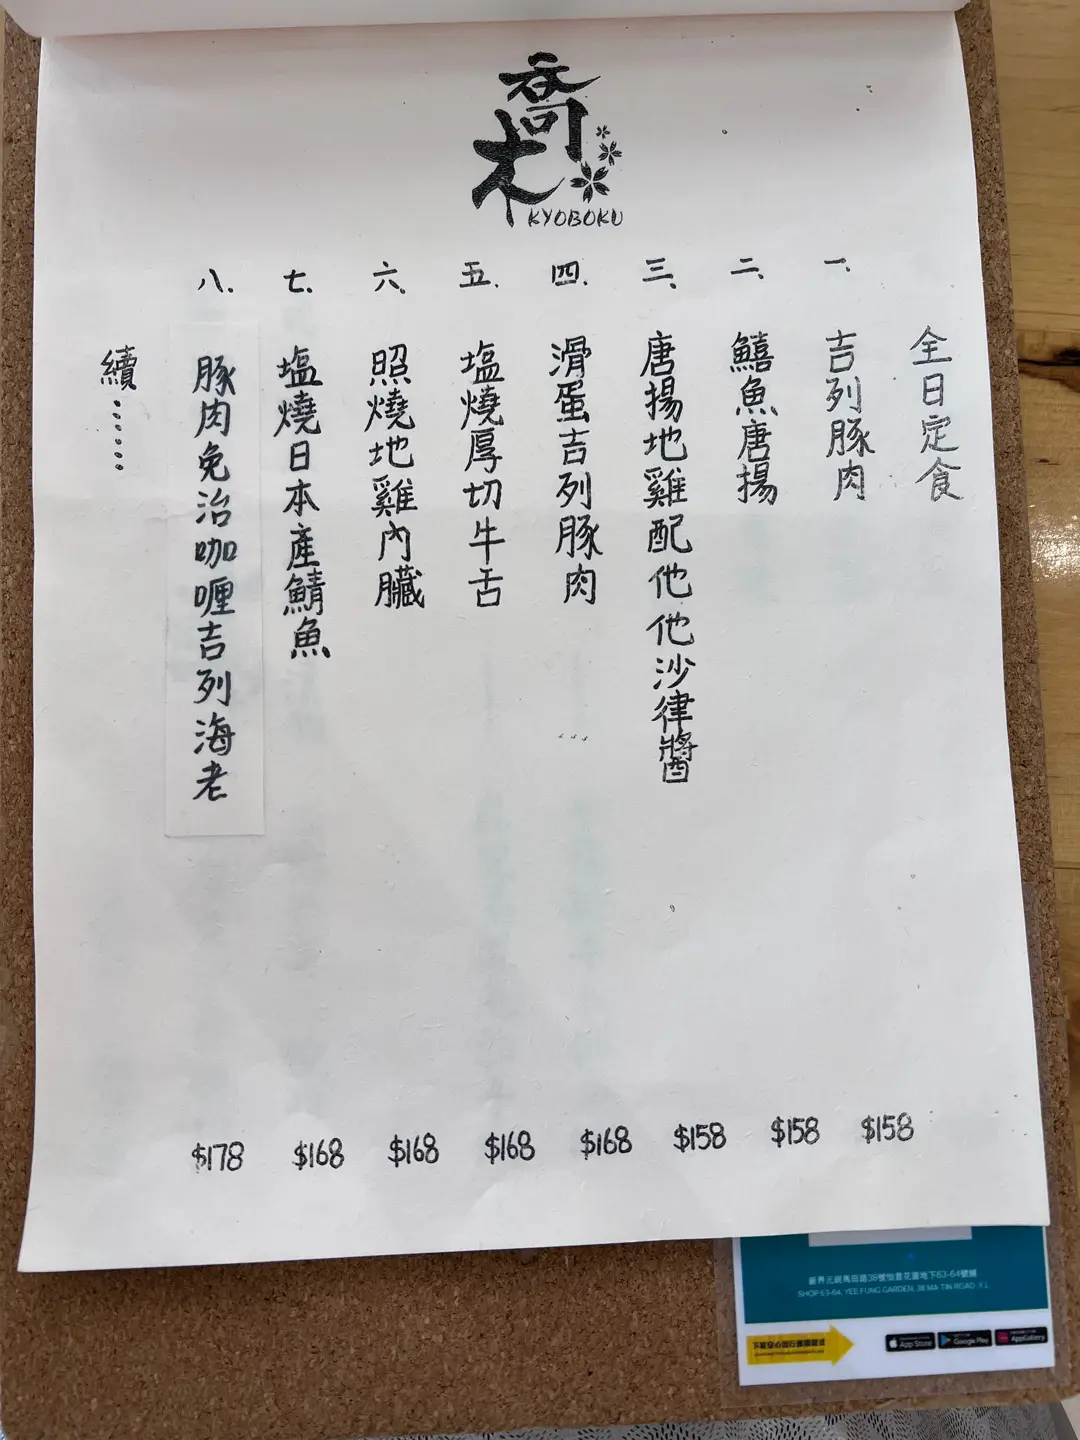 喬木
KYOBOKU
全日定食
一、
吉列豚肉
$158
二、
鱚魚唐揚
$158
三、
唐揚地雞配他他沙律醬
$158
四、
滑蛋吉列豚肉
$168
五、
塩燒厚切牛舌
$168
六、
照燒地雞內臟
$168
七、
塩燒日本產鯖魚
$168
八、
豚肉免治咖喱吉列海老
$178
續⋯⋯
新界元朗馬田路38號怡豐花園地下63-64號舖
SHOP 63-64, YEE FUNG GARDEN, 38 MA TIN ROAD, Y.L.
App Store
Google Play
AppGallery